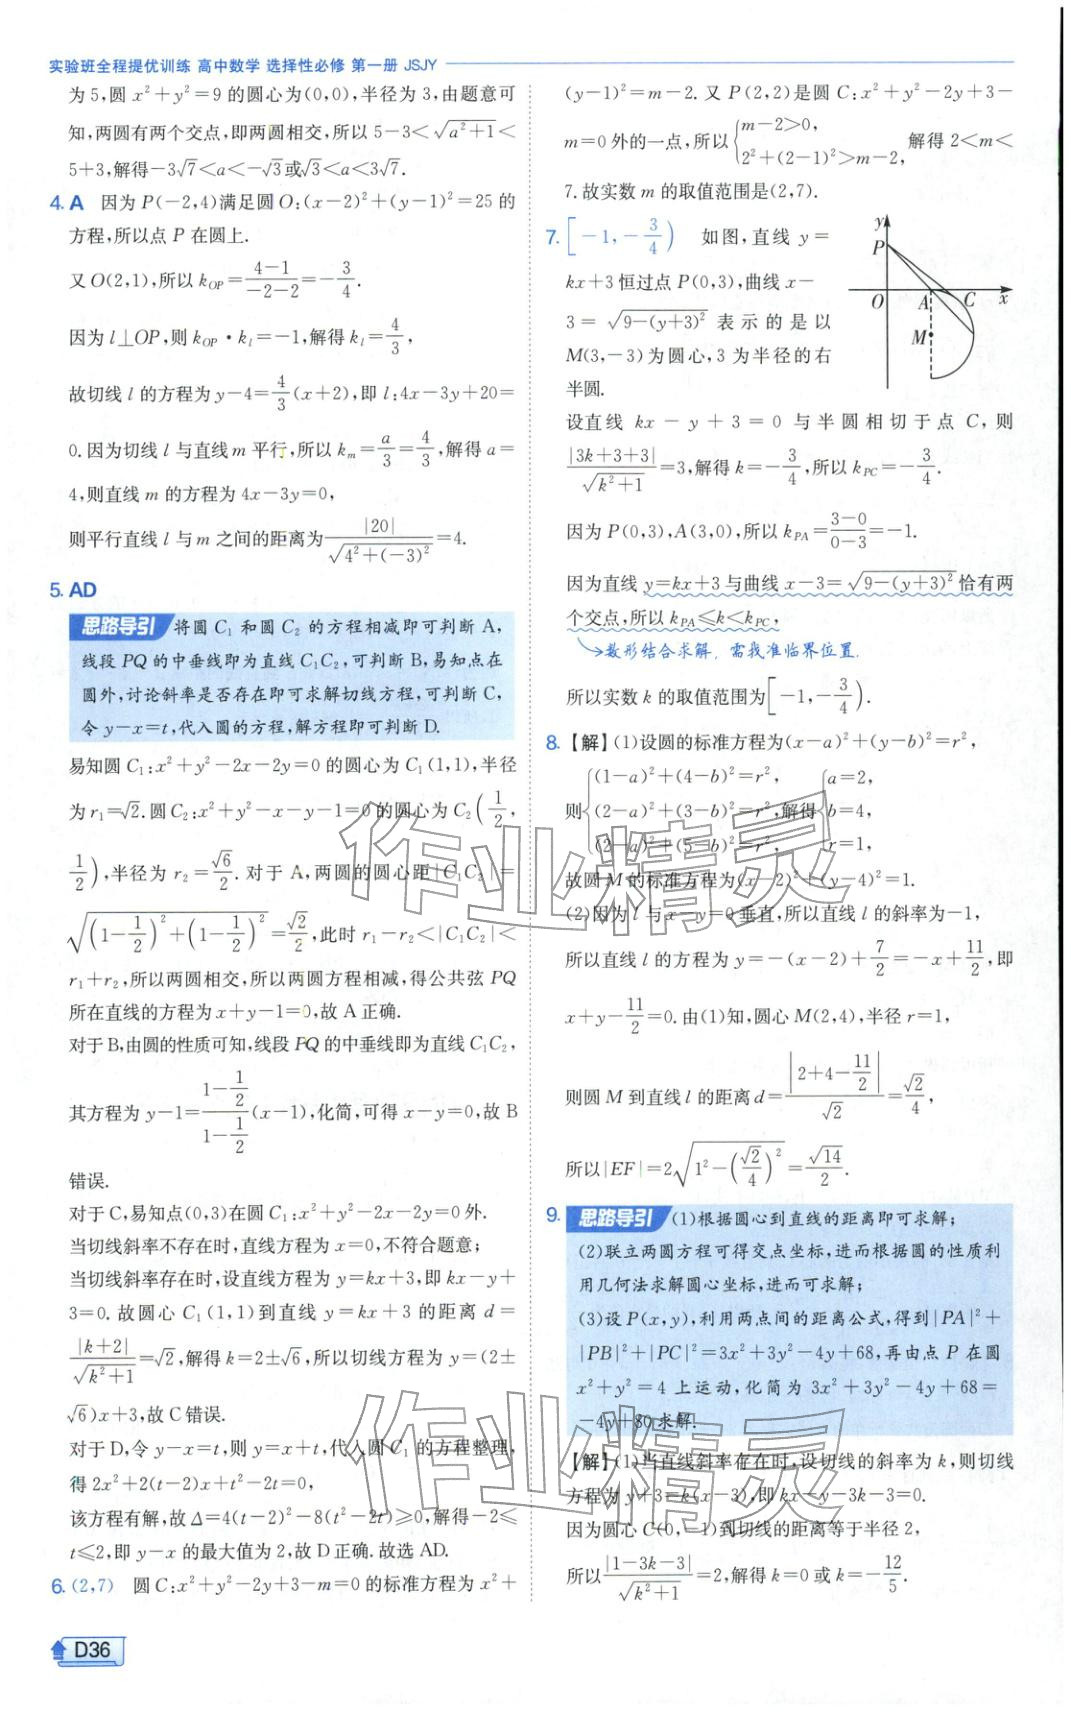 实验班全程提优训练 高中数学 选择性必修 第一册 JSJY
为5,圆 x²+y²=9 的圆心为(0,0),半径为 3,由题意可
知,两圆有两个交点,即两圆相交,所以 5-3<√(a²+1)<
5+3,解得-3√7<a<-√3或√3<a<3√7.
4. A 因为 P(-2,4)满足圆 O:(x-2)²+(y-1)²=25 的
方程,所以点 P 在圆上.
又 O(2,1),所以 k_OP=(4-1)/(-2-2)=-3/4.
因为 l⊥OP,则 k_OP·k_l=-1,解得 k_l=4/3,
故切线 l 的方程为 y-4=4/3(x+2),即 l:4x-3y+20=
0.因为切线 l 与直线 m 平行,所以 k_m=a/3=4/3,解得 a=
4,则直线 m 的方程为 4x-3y=0,
则平行直线 l 与 m 之间的距离为|20|/√(4²+(-3)²)=4.
5. AD
思路导引 将圆 C₁ 和圆 C₂ 的方程相减即可判断 A,
线段 PQ 的中垂线即为直线 C₁C₂,可判断 B,易知点在
圆外,讨论斜率是否存在即可求解切线方程,可判断 C,
令 y-x=t,代入圆的方程,解方程即可判断 D.
易知圆 C₁:x²+y²-2x-2y=0 的圆心为 C₁(1,1),半径
为 r₁=√2.圆 C₂:x²+y²-x-y-1=0 的圆心为 C₂(1/2,
1/2),半径为 r₂=√6/2.对于 A,两圆的圆心距|C₁C₂|=
√((1-1/2)²+(1-1/2)²)=√2/2,此时 r₁-r₂<|C₁C₂|<
r₁+r₂,所以两圆相交,所以两圆方程相减,得公共弦 PQ
所在直线的方程为 x+y-1=0,故 A 正确.
对于 B,由圆的性质可知,线段 PQ 的中垂线即为直线 C₁C₂,
其方程为 y-1=(1-1/2)/(1-1/2)(x-1),化简,可得 x-y=0,故 B
错误.
对于 C,易知点(0,3)在圆 C₁:x²+y²-2x-2y=0 外.
当切线斜率不存在时,直线方程为 x=0,不符合题意;
当切线斜率存在时,设直线方程为 y=kx+3,即 kx-y+
3=0.故圆心 C₁(1,1)到直线 y=kx+3 的距离 d=
|k+2|/√(k²+1)=√2,解得 k=2±√6,所以切线方程为 y=(2±
√6)x+3,故 C 错误.
对于 D,令 y-x=t,则 y=x+t,代入圆 C₁ 的方程整理,
得 2x²+2(t-2)x+t²-2t=0,
该方程有解,故 Δ=4(t-2)²-8(t²-2t)≥0,解得-2≤
t≤2,即 y-x 的最大值为 2,故 D 正确.故选 AD.
6. (2,7) 圆 C:x²+y²-2y+3-m=0 的标准方程为 x²+
D36
(y-1)²=m-2.又 P(2,2)是圆 C:x²+y²-2y+3-
m=0 外的一点,所以{m-2>0, 2²+(2-1)²>m-2, 解得 2<m<
7.故实数 m 的取值范围是(2,7).
7. [-1,-3/4) 如图,直线 y=
kx+3 恒过点 P(0,3),曲线 x-
3=√(9-(y+3)²) 表示的是以
M(3,-3)为圆心,3 为半径的右
半圆.
y
P
O A C x
M
设直线 kx-y+3=0 与半圆相切于点 C,则
|3k+3+3|/√(k²+1)=3,解得 k=-3/4,所以 k_PC=-3/4.
因为 P(0,3),A(3,0),所以 k_PA=(3-0)/(0-3)=-1.
因为直线 y=kx+3 与曲线 x-3=√(9-(y+3)²)恰有两
个交点,所以 k_PA≤k<k_PC,
数形结合求解,需找准临界位置.
所以实数 k 的取值范围为[-1,-3/4).
8. 【解】(1)设圆的标准方程为(x-a)²+(y-b)²=r²,
则{(1-a)²+(4-b)²=r², (2-a)²+(3-b)²=r², (2-a)²+(5-b)²=r², 解得{a=2, b=4, r=1,
故圆 M 的标准方程为(x-2)²+(y-4)²=1.
(2)因为 l 与 x-y=0 垂直,所以直线 l 的斜率为-1,
所以直线 l 的方程为 y=-(x-2)+7/2=-x+11/2,即
x+y-11/2=0.由(1)知,圆心 M(2,4),半径 r=1,
则圆 M 到直线 l 的距离 d=|2+4-11/2|/√2=√2/4,
所以|EF|=2√(1²-(√2/4)²)=√14/2.
9. 思路导引 (1)根据圆心到直线的距离即可求解;
(2)联立两圆方程可得交点坐标,进而根据圆的性质利
用几何法求解圆心坐标,进而可求解;
(3)设 P(x,y),利用两点间的距离公式,得到|PA|²+
|PB|²+|PC|²=3x²+3y²-4y+68,再由点 P 在圆
x²+y²=4 上运动,化简为 3x²+3y²-4y+68=
-4y+80 求解.
【解】(1)当直线斜率存在时,设切线的斜率为 k,则切线
方程为 y+3=k(x-3),即 kx-y-3k-3=0.
因为圆心 C(0,-1)到切线的距离等于半径 2,
所以|1-3k-3|/√(k²+1)=2,解得 k=0 或 k=-12/5.
作业精灵
作业精灵